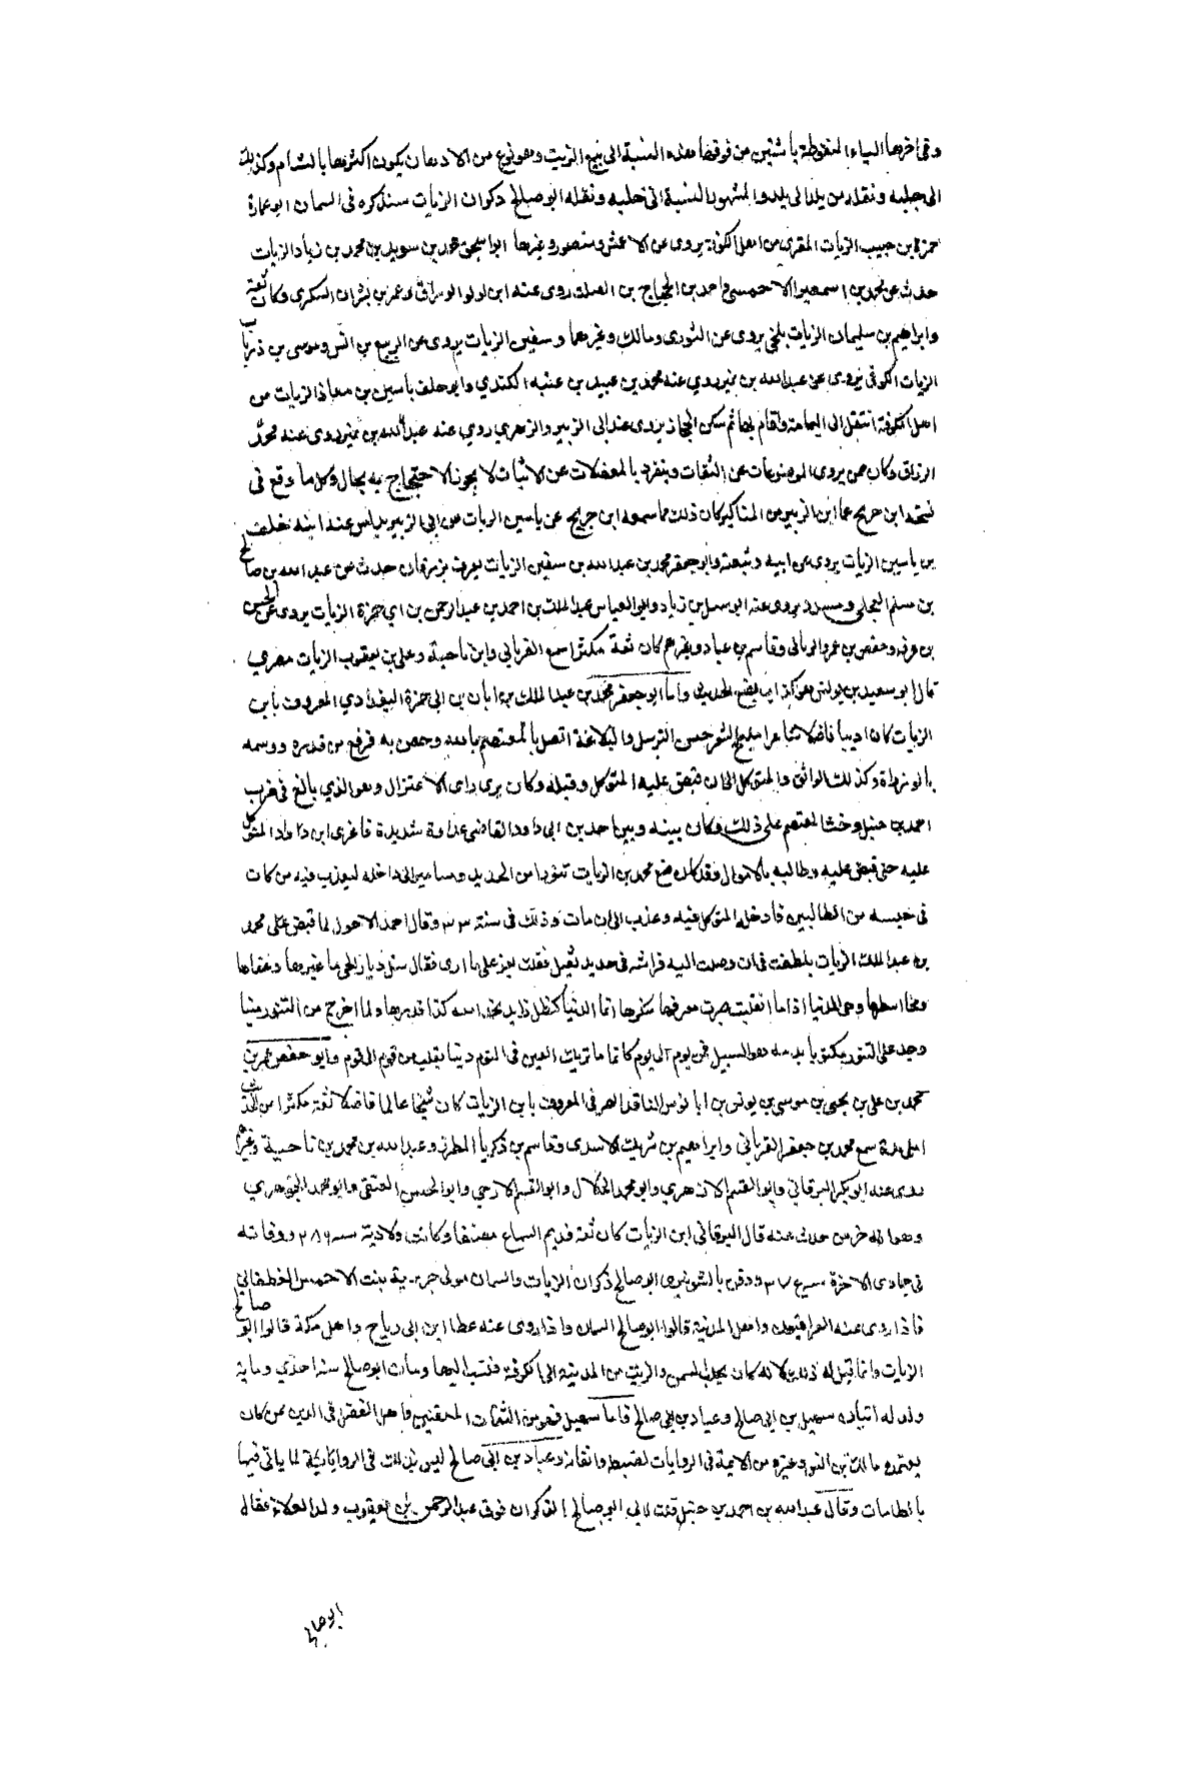 وفى اخرها الياء المنقوطة باثنين من فوقها هذه النسبة الى بيع الزيت وهو نوع من الادهان يكون اكثرها بالشام وكذلك
الى جلبه ونقله من بلد الى بلد والمشهور النسبة الى جلبه ونقله ابو صالح ذكوان الزيات سنذكره فى السمان ابو عمارة
حمزة بن حبيب الزيات المقرى من اهل الكوفة يروى عن الاعمش ومنصور وغيرها ابو اسحق محمد بن سويد بن محمد بن زياد الزيات
حدث عن محمد بن اسمعيل الاحمسى واحمد بن الحجاج بن الصلت روى عنه ابن لولو الوراق وعمر بن بشران السكرى وكان ثقة
وابراهيم بن سليمان الزيات بلخى يروى عن الثورى ومالك وغيرهما وسفين الزيات يروى عن الربيع بن انس وموسى بن
الزيات الكوفى يروى عن عبد الله بن نمير روى عنه محمد بن عبيد بن عتبه الكندي وابو خلف ياسين بن معاذ الزيات من
اهل الكوفة انتقل الى اليمامة واقام بها ثم سكن الحجاز يروى عن ابى الزبير والزهري روي عنه عبد الله بن نمير روى عنه
الرزاق وكان ممن يروى الموضوعات عن الثقات وينفرد بالمعضلات عن الاثبات لا يجوز الاحتجاج به بحال وكل ما وقع فى
نسخة ابن جريج عن ابى الزبير من المناكير كان ذلك مما سمعه ابن جريج عن ياسين الزيات عن ابى الزبير يدلس عنه ابنه خلف
بن ياسين الزيات يروى عن ابيه وشعبة وابو جعفر محمد بن عبد الله بن سفين الزيات يعرف بزرقان حدث عن عبد الله بن صالح
بن مسلم العجلى ومسدد يروى عنه ابو سهل بن زياد وابو العباس عبد الملك بن احمد بن عبد الرحمن بن ابي حمزة الزيات يروى عن الحسن
بن عرفه وحفص بن عمرو الربالى وقاسم بن عباد وغيرهم كان ثقة مكثرا سمع الفريابي وابن ناجية وعلى بن يعقوب الزيات مصري
قال ابو سعيد بن يونس هو كذاب يضع الحديث واما ابو جعفر محمد بن عبد الملك بن ابان بن ابى حمزة البغدادي المعروف بابن
الزيات كان اديبا فاضلا شاعرا مليح الشعر حسن الترسل والبلاغة اتصل بالمعتصم بالله وخص به فرفع من قدره ووسمه
بالوزارة وكذلك الواثق والمتوكل الى ان قبض عليه المتوكل وقتله وكان يرى راى الاعتزال وهو الذي بالغ فى ضرب
احمد بن حنبل وحث المعتصم على ذلك وكان بينه وبين احمد بن ابى داود القاضى عداوة شديدة فاغرى ابن داود المتوكل
عليه حتى قبض عليه وطالبه بالاموال وقد كان صنع محمد بن الزيات تنورا من الحديد ومسامير الى داخله ليعذب فيه من كان
فى حبسه من المطالبين فادخله المتوكل فيه وعذب الى ان مات وذلك فى سنة ٣٣ وقال احمد الاحول لما قبض على محمد
بن عبد الملك الزيات تلطفت فى ان وصلت اليه فرايته فى حديد ثقيل فقلت يعز على ما ارى فقال سل ديار الحى ما غيرها وعفاها
ومحا اسطرها وهى الدنيا اذا ما انقلبت صيرت معروفها منكرها انما الدنيا كظل زايل نحمد الله كذا قدرها ولما اخرج من التنور ميتا
وجد على التنور مكتوبا بدمه هو السبيل فمن يوم الى يوم كانما ما تريك العين فى النوم دنيا تنقل من قوم الى قوم وابو حفص عمر بن
محمد بن على بن يحيى بن موسى بن يونس بن انانوس الناقد الصيرفى المعروف بابن الزيات كان شيخا عالما فاضلا ثقة مكثرا من الحديث
اهل بلده سمع محمد بن جعفر الفريابي وابراهيم بن شريك الاسدى وقاسم بن ذكريا المطرز وعبد الله بن محمد بن ناجية وغيرهم
روى عنه ابو بكر البرقاني وابو القسم الازهري وابو محمد الخلال وابو القسم الازجي وابو الحسن العتيقى وابو محمد الجوهري
وهو اخر من حدث عنه قال البرقانى ابن الزيات كان ثقة قديم السماع مصنفا وكانت ولادته سنه ٢٨٦ ووفاته
فى جمادى الاخرة ودفن بالشونيزى ابو صالح ذكوان الزيات والسمان مولى جويرية بنت الاحمس الغطفانى
فاذا روى عنه العراقيون واهل المدنية قالوا ابو صالح السمان واذا روى عنه عطا ابن ابى رباح واهل مكة قالوا ابو صالح
الزيات وانما قيل له ذلك لانه كان يجلب السمن والزيت من المدينه الى الكوفة فنسب اليها ومات ابو صالح سنة احدي وماية
وله ابناه سهيل بن ابى صالح وعباد بن ابى صالح فاما سهيل فهو من الثقات المتقنين واهل الفضل فى الدين ممن كان
يعتمده مالك بن انس وغيره من الايمة فى الروايات لضبطه واتقانه وعباد بن ابى صالح ليس بذلك فى الرواياتية لما ياتى فيها
بالطامات وقال عبد الله بن احمد بن حنبل قلت لابى ابو صالح ذكوان فوق عبد الرحمن بن يعقوب والد العلاء فقال
ابو صالح